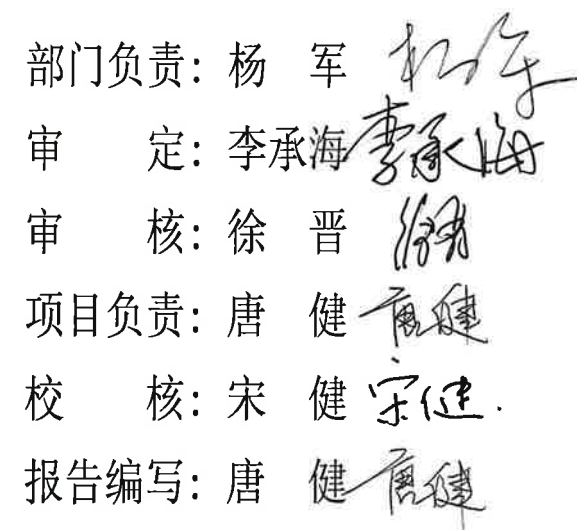 部门负责：杨 军 杨军
审 定：李承海 李承海
审 核：徐 晋 徐晋
项目负责：唐 健 唐健
校 核：宋 健 宋健.
报告编写：唐 健 唐健